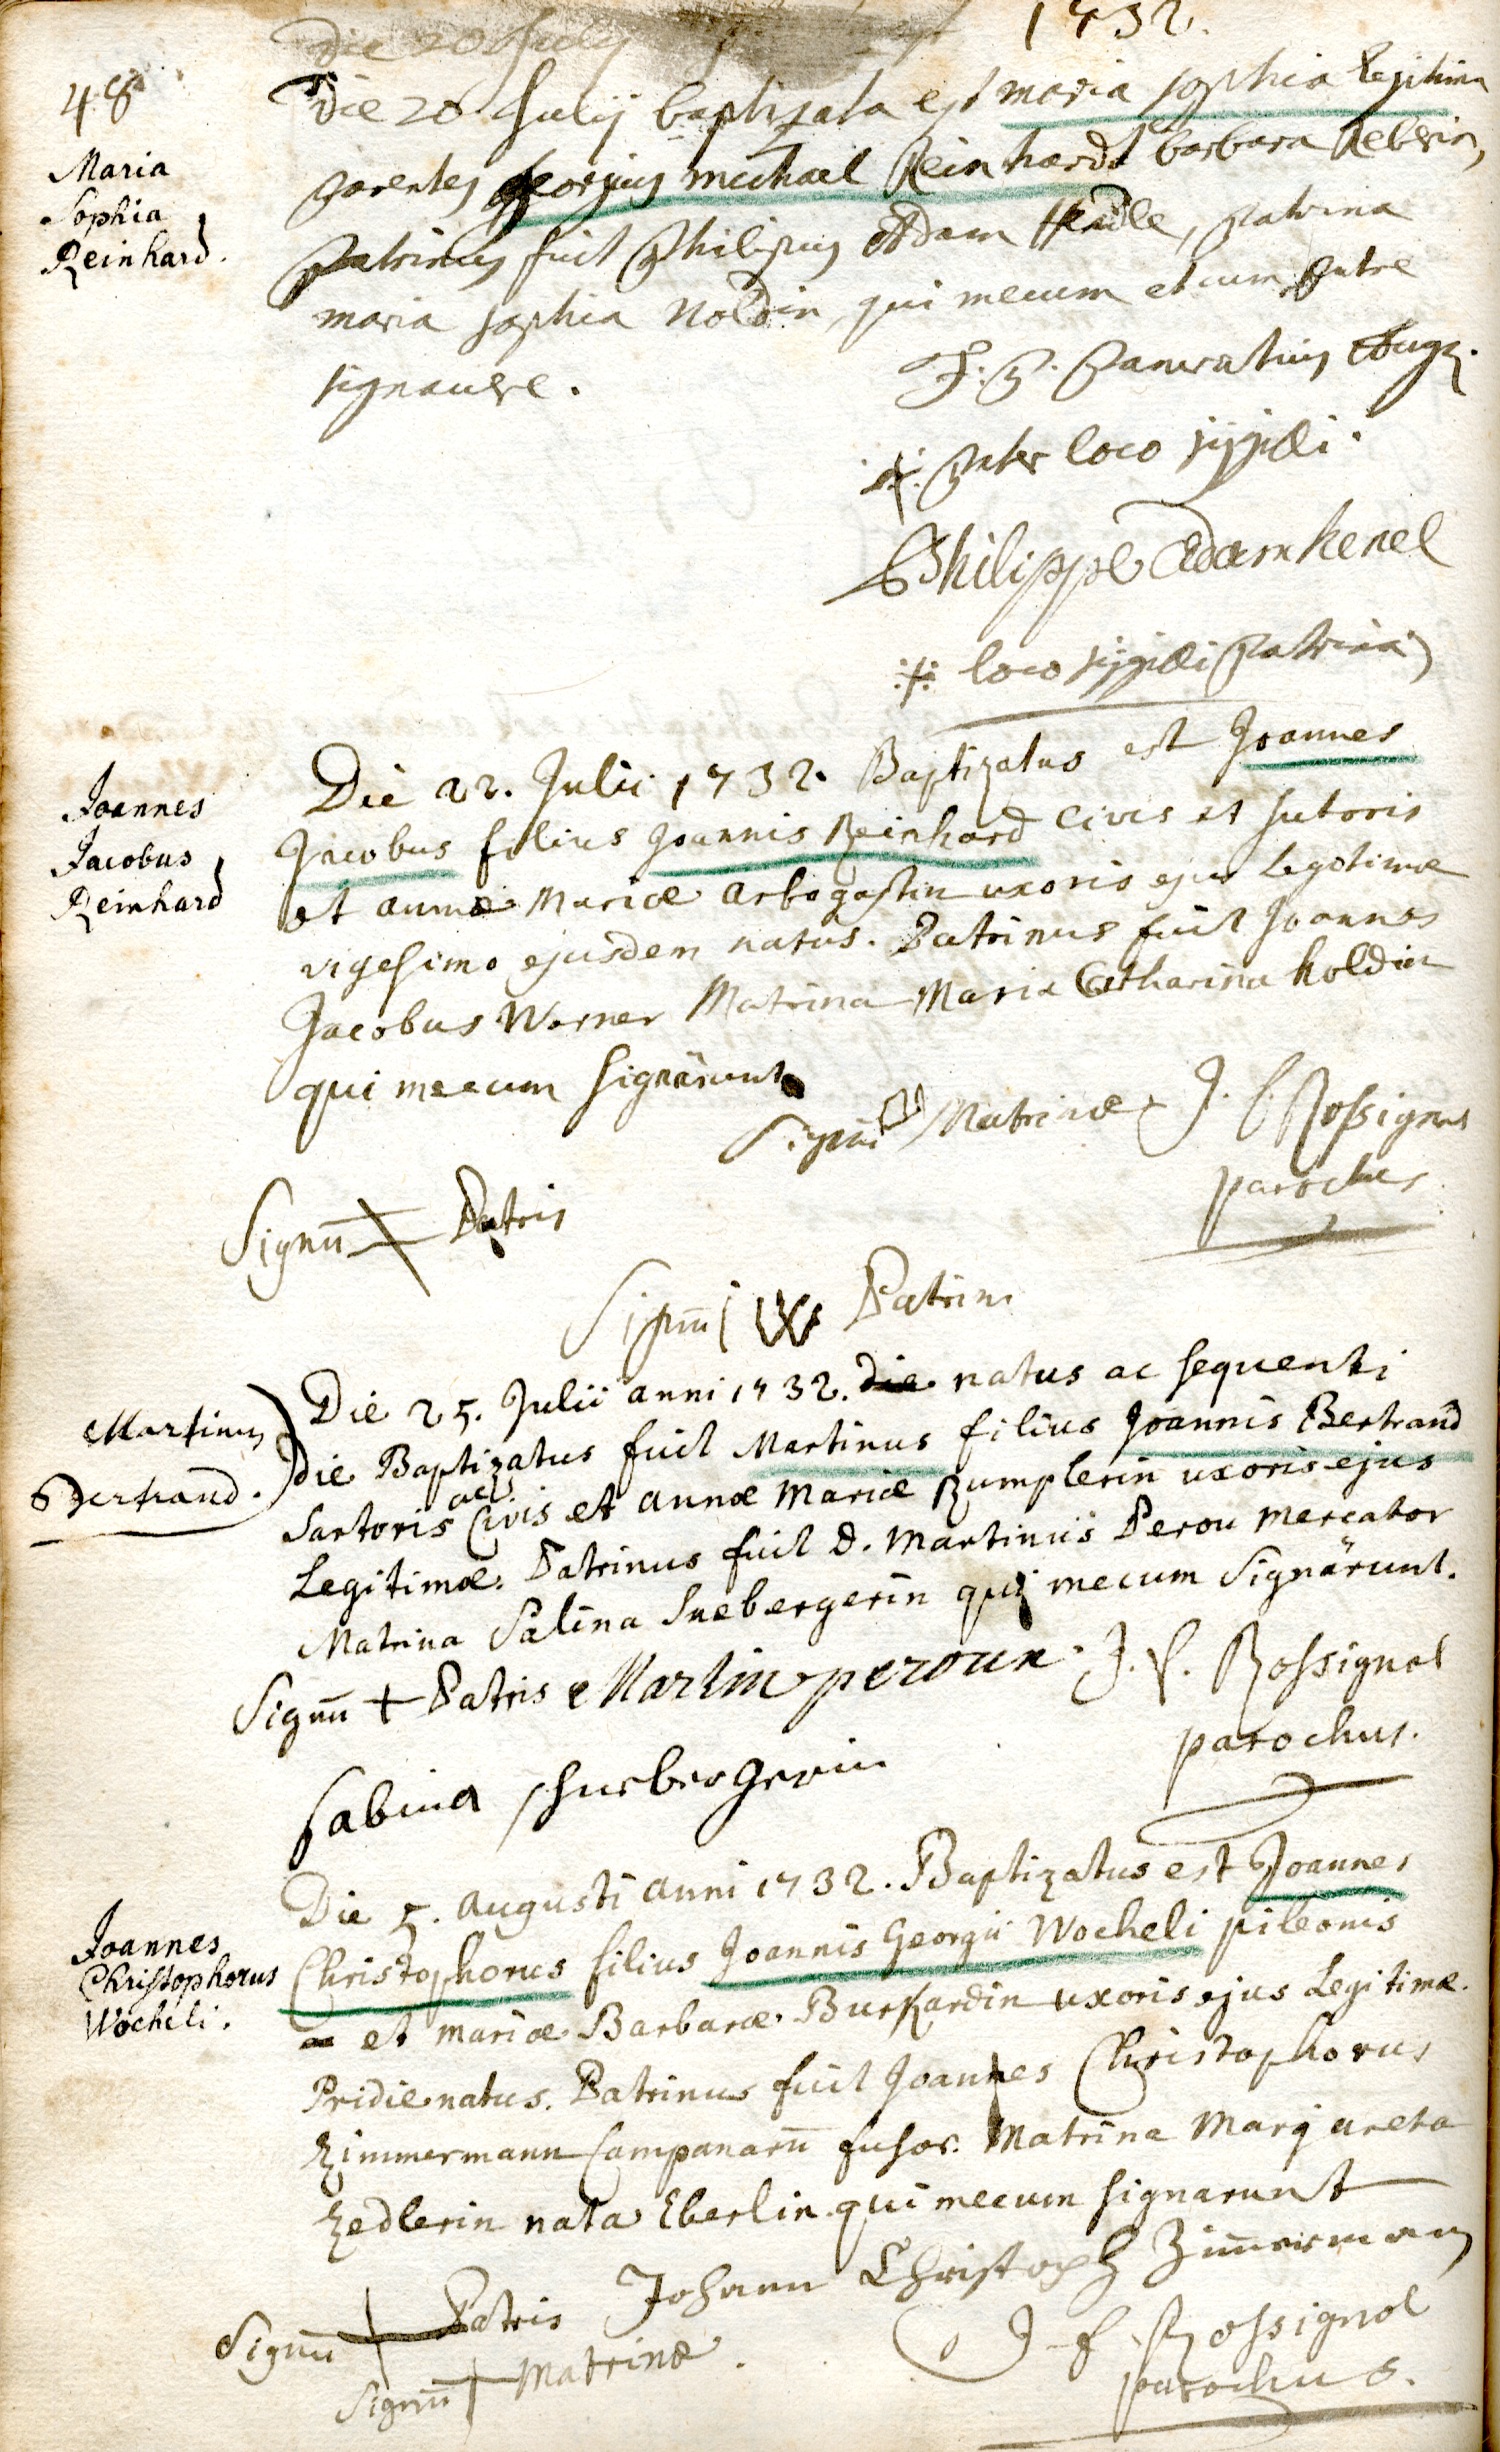 Die 20 July
1732.
48
Die 20 Julij baptizata est maria sophia legitima
Maria
Sophia
Reinhard.
parentes georgius michael Reinhardt barbara
patrinus fuit Philipus Adam, patrina
maria sophia Noldin, qui mecum et cum patre
signauere.
F. P. Pancratius Aug.
pater loco sigilli.
Philippe Adam kenel
loco sigilli patrinæ
Joannes
Jacobus
Reinhard
Die 22. Julii 1732. Baptizatus est Joannes
Jacobus filius Joannis Reinhard civis et sutoris
et annæ Mariæ Arbogastin uxoris ejus legitimæ
vigesimo ejusdem natus. Patrinus fuit Joannes
Jacobus Werner Matrina Maria Catharina Noldin
qui mecum signârunt
Signū Matrinæ J. f. Rossignol
parochus
Signū Patris
Signū Patrini
Martinus
Bertrand.
Die 25. Julii anni 1732. natus ac sequenti
die Baptizatus fuit Martinus filius Joannis Bertrand
Sartoris ac Civis et annæ Mariæ Rumplerin uxoris ejus
Legitimæ. Patrinus fuit D. Martinus Perou mercator
Matrina Salina Sneebergerin qui mecum signârunt.
Signū + Patris Martin peroux. J. f. Rossignol
parochus.
Sabina schnebergerin
Joannes
Christophorus
Wocheli.
Die 5. Augusti anni 1732. Baptizatus est Joannes
Christophorus filius Joannis Georgii Wocheli pileonis
et mariæ Barbaræ Burkardin uxoris ejus Legitimæ.
Pridie natus. Patrinus fuit Joannes Christophorus
Zimmermann Campanarū fusor. Matrina Margareta
Zedlerin nata Eberlin qui mecum signarunt
Signū + Patris Johann Christoph Zimmermann
Signū + Matrinæ. J. f. Rossignol
parochus.